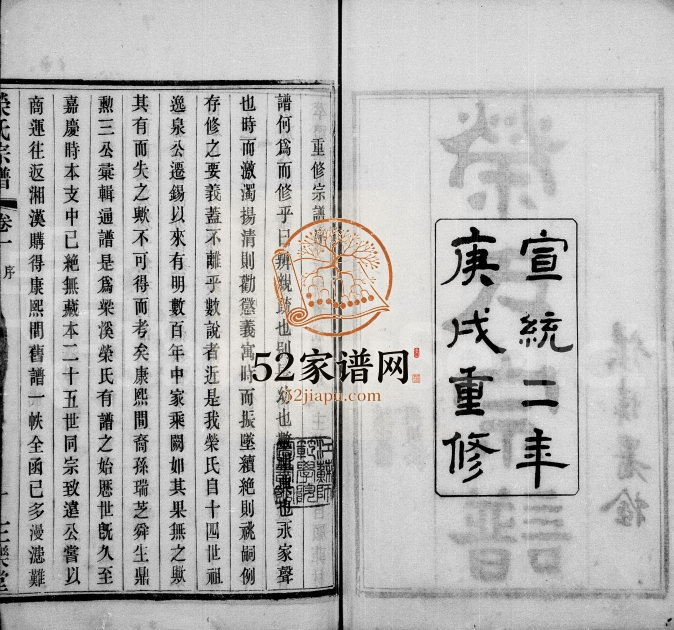 宣統二年
庚戌重修
重修宗譜
譜何爲而修乎曰辨親疏也別
也時而激濁揚清則勸懲義寓時而振墜續絶則祧嗣例
存修之要義蓋不離乎數說者近是我榮氏自十四世祖
逸泉公遷錫以來有明數百年中家乘闕如其果無之歟
其有而失之歟不可得而考矣康熙間裔孫瑞芝舜生鼎
勲三公彙輯通譜是爲梁溪榮氏有譜之始歷世旣久至
嘉慶時本支中已絶無藏本二十五世同宗致遠公嘗以
商運往返湘漢購得康熙間舊譜一帙全函已多漫漶難
榮氏宗譜
卷一
序
三樂堂
52家谱网
52jiapu.com